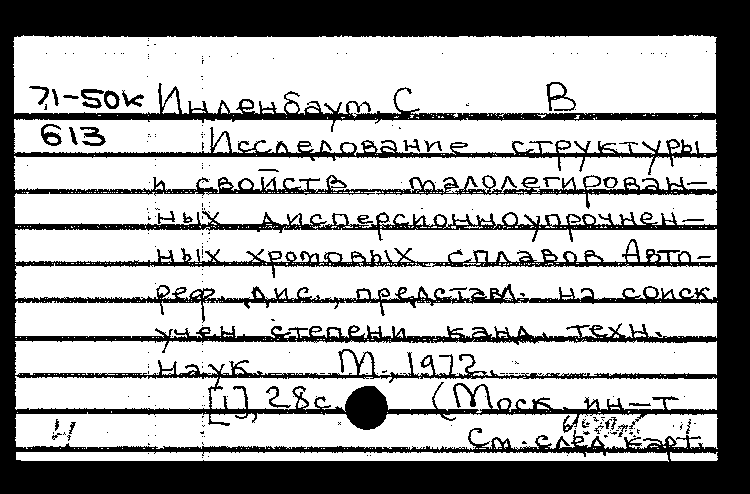 71-50к Инденбаум, С В
613 Исследование структуры
и свойств малолегирован-
ных дисперсионноупрочнен-
ных хромовых сплавов Авто-
реф. дис., представл. на соиск.
учен. степени канд. техн.
наук. М., 1972.
[1], 28с. (Моск. ин-т
См. след. карт.